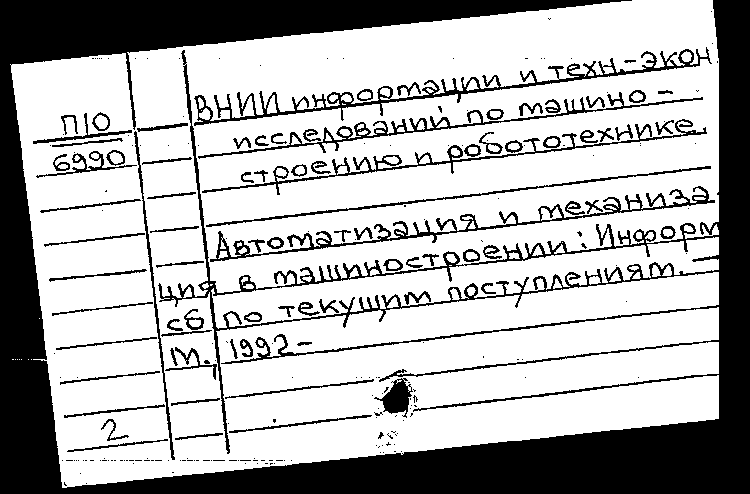 П10
6990
ВНИИ информации и техн.-экон
исследований по машино-
строению и робототехнике.
Автоматизация и механиза-
ция в машиностроении: Информ
сб по текущим поступлениям. —
М., 1992-
2